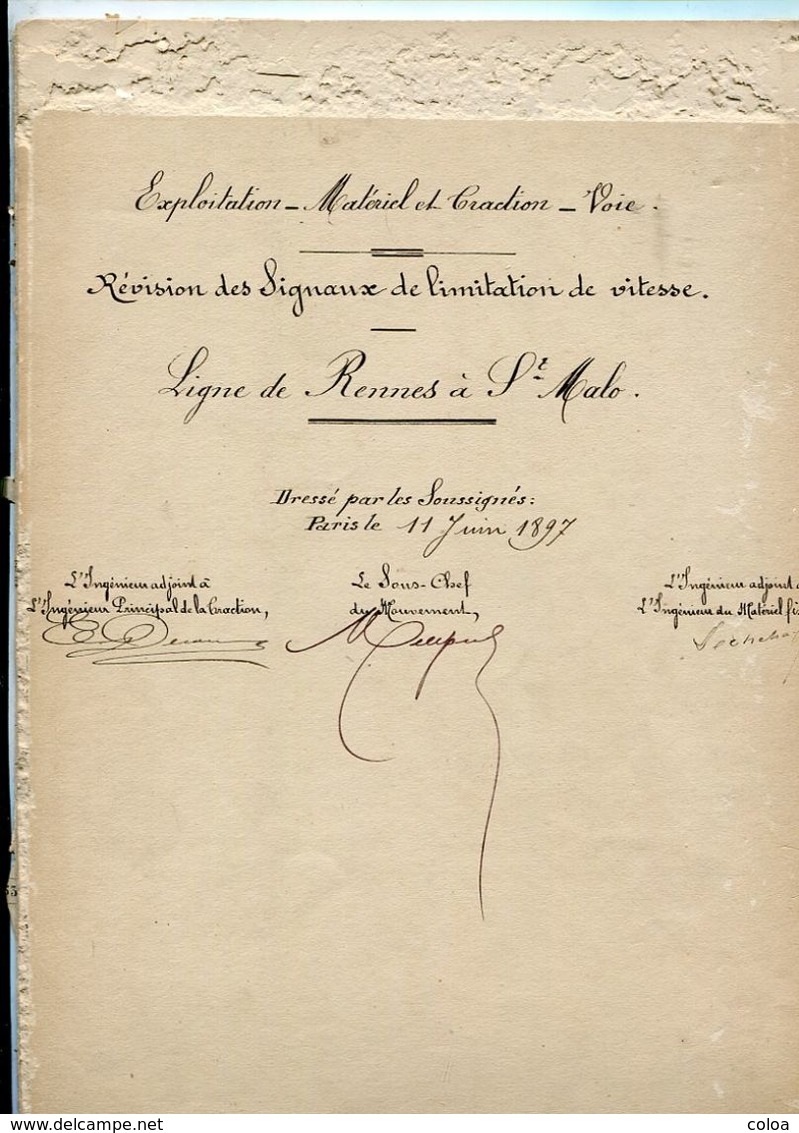 Exploitation - Matériel et Traction - Voie.
Révision des Signaux de limitation de vitesse.
Ligne de Rennes à St Malo.
Dressé par les Soussignés:
Paris le 11 Juin 1897
L'Ingénieur adjoint à
L'Ingénieur Principal de la Traction,
Le Sous-Chef
du Mouvement,
L'Ingénieur adjoint à
L'Ingénieur du Matériel fi
delcampe.net
coloa